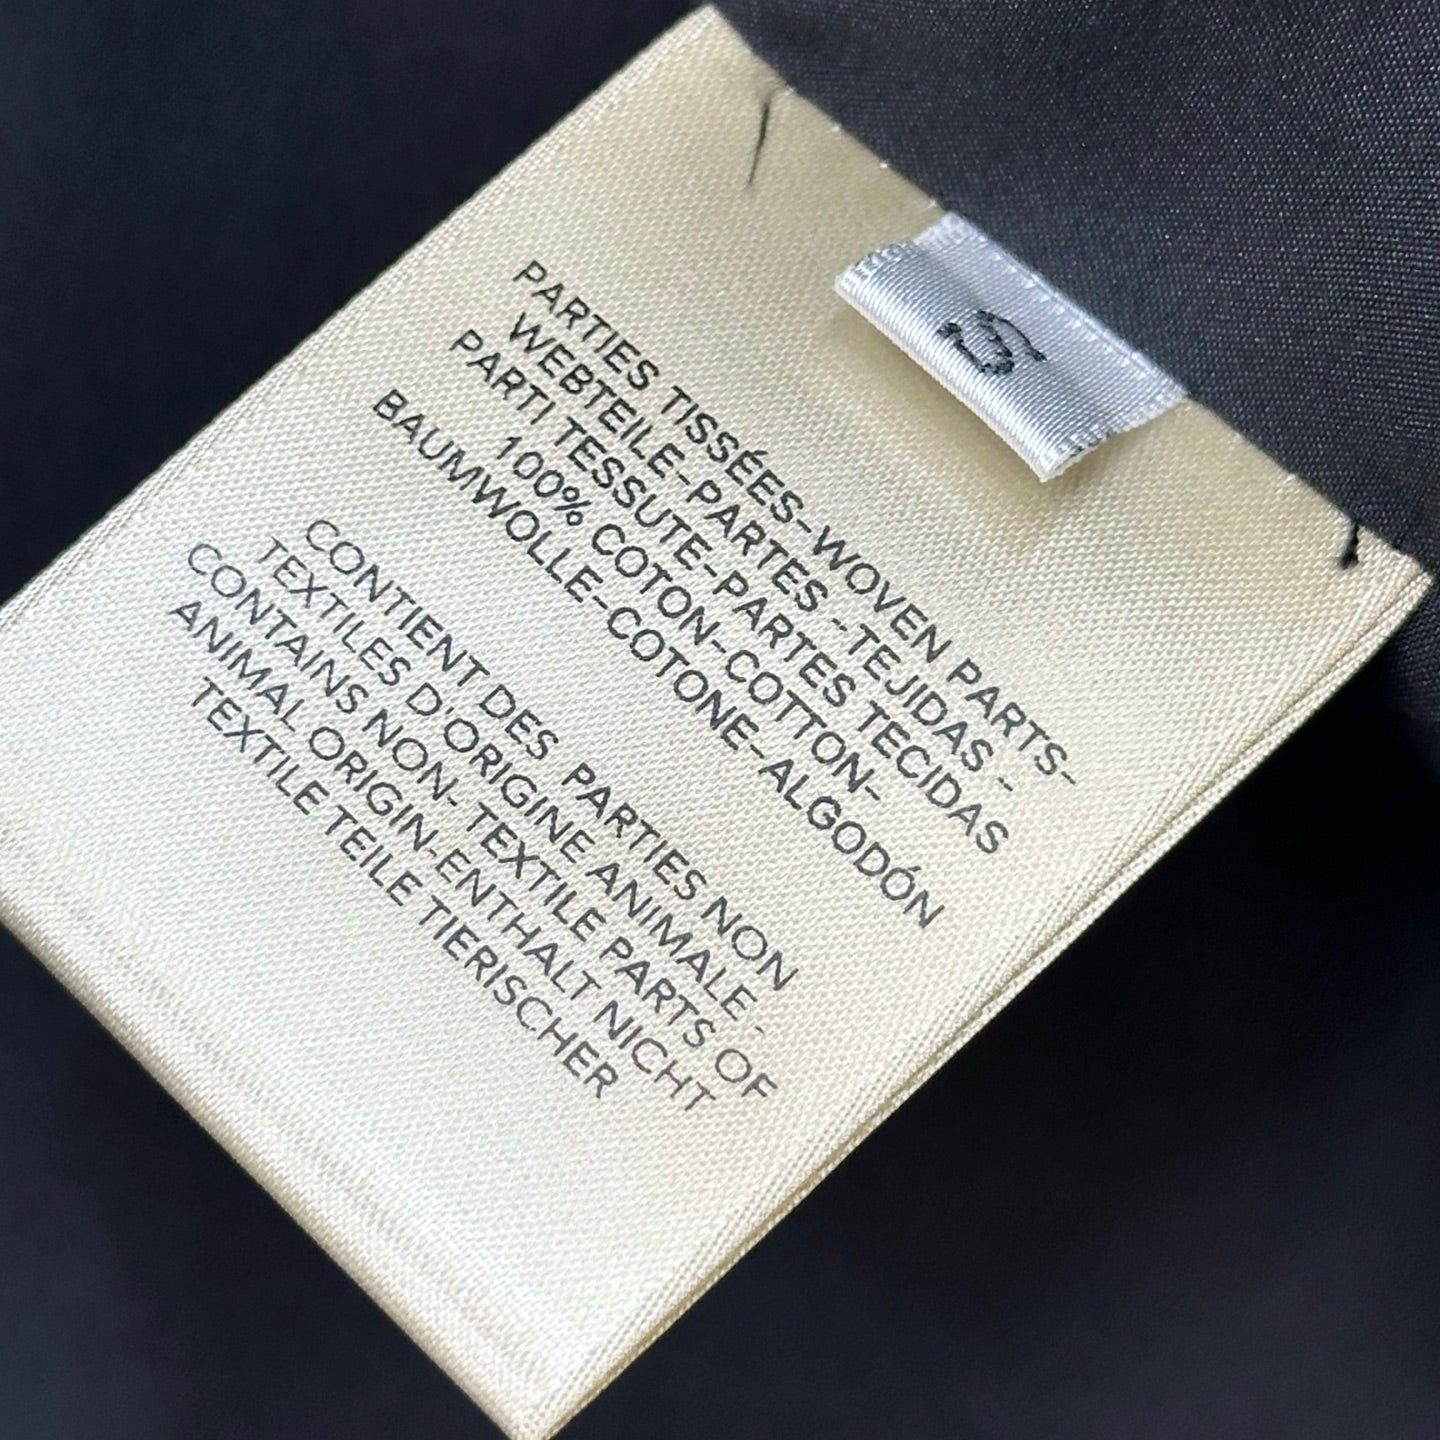 PARTIES TISSÉES-WOVEN PARTS-
WEBTEILE-PARTES -TEJIDAS -
PARTI TESSUTE-PARTES TECIDAS
100% COTON-COTTON-
BAUMWOLLE-COTONE-ALGODÓN
CONTIENT DES PARTIES NON
TEXTILES D'ORIGINE ANIMALE -
CONTAINS NON-TEXTILE PARTS OF
ANIMAL ORIGIN-ENTHALT NICHT
TEXTILE TEILE TIERISCHER